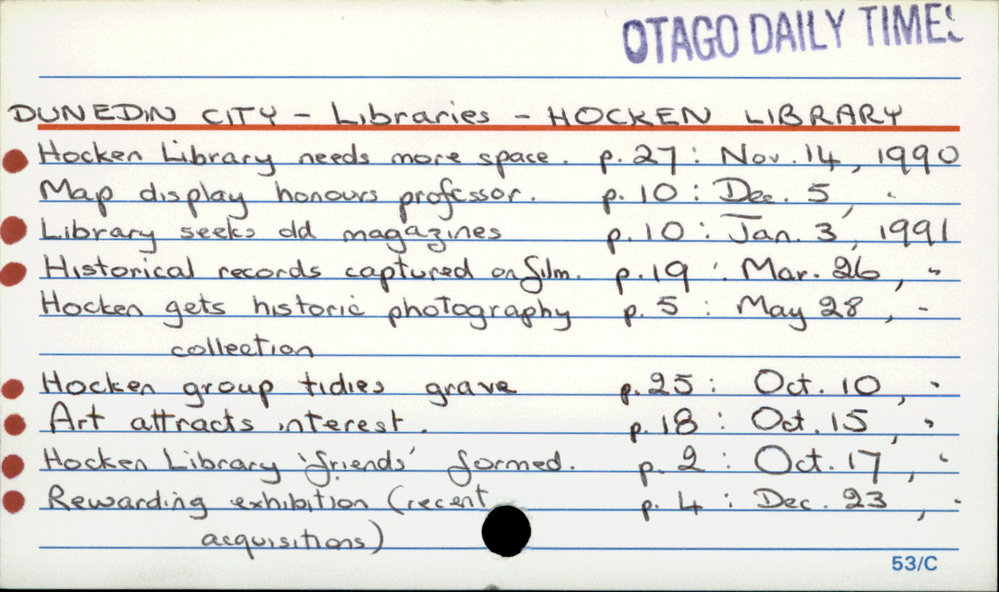 OTAGO DAILY TIMES
DUNEDIN CITY - Libraries - HOCKEN LIBRARY
Hocken Library needs more space. p. 27: Nov. 14, 1990
Map display honours professor. p. 10: Dec. 5, "
Library seeks old magazines p. 10: Jan. 3, 1991
Historical records captured on film. p. 19: Mar. 26, "
Hocken gets historic photography p. 5: May 28, "
collection
Hocken group tidies grave p. 25: Oct. 10, "
Art attracts interest. p. 18: Oct. 15, "
Hocken Library 'friends' formed. p. 2: Oct. 17, "
Rewarding exhibition (recent p. 4: Dec. 23, "
acquisitions)
53/C